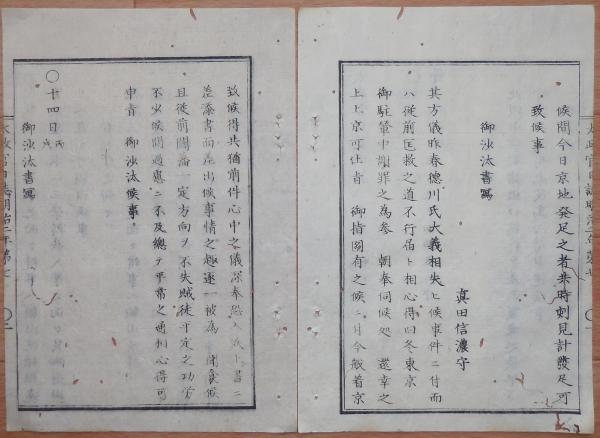 候間今日京地発足之者共時刻見計發足可
致候事
御沙汰書寫
真田信濃守
其方儀昨春德川氏大義相失ヒ候事件ニ付而
ハ従前匡救之道不行届ト相心得旧冬東京
御駐輦中謝罪之為参 朝奉伺候処 還幸之
上上京可仕旨 御指圖有之候ニ付今般着京
致候得共猶前件心中之儀深奉恐入
差添書面差出候事情之趣逐一被為 聞食候
且従前闔藩一定方向ヲ不失賊徒平定之功労
不少候間過慮ニ不及総テ平常之通相心得可
申旨 御沙汰候事
○十四日丙戌
御沙汰書寫
太政官日誌明治二年第七